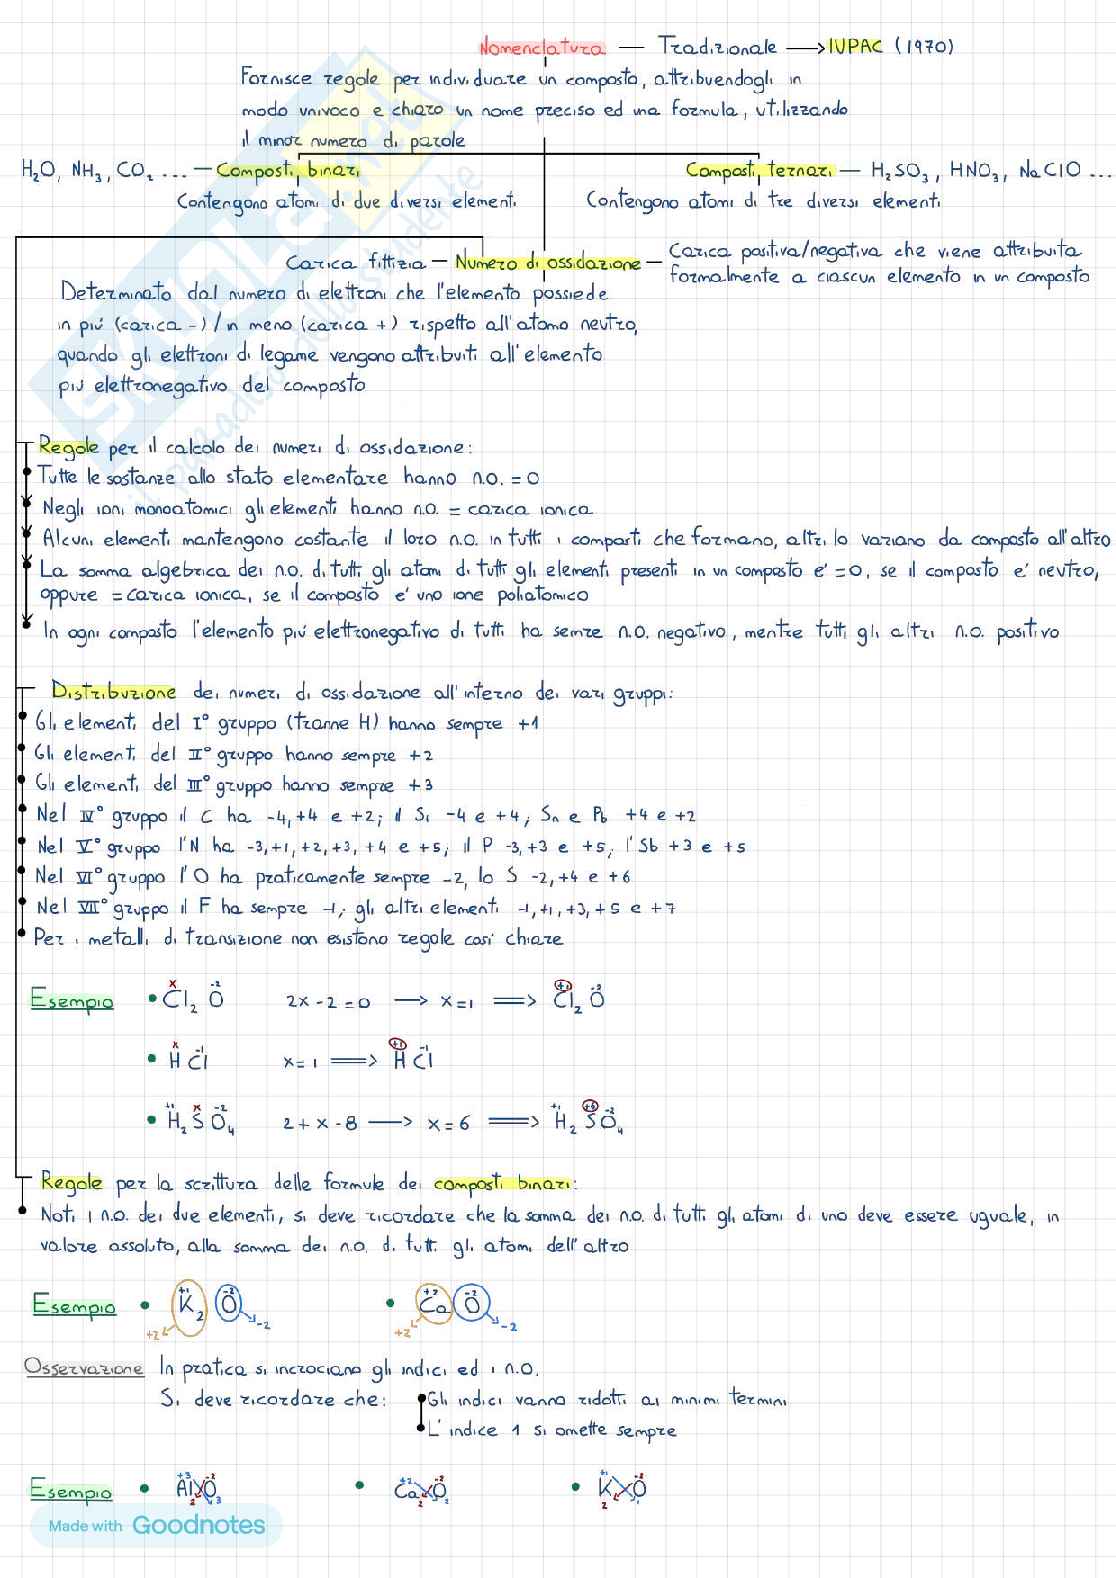 Nomenclatura — Tradizionale → IUPAC (1970)
Fornisce regole per individuare un composto, attribuendogli in
modo univoco e chiaro un nome preciso ed una formula, utilizzando
il minor numero di parole
H₂O, NH₃, CO₂ ... — Composti binari
Composti ternari — H₂SO₃, HNO₃, NaClO ...
Contengono atomi di due diversi elementi
Contengono atomi di tre diversi elementi
Carica fittizia — Numero di ossidazione — Carica positiva/negativa che viene attribuita
formalmente a ciascun elemento in un composto
Determinato dal numero di elettroni che l'elemento possiede
in più (carica -) / in meno (carica +) rispetto all'atomo neutro,
quando gli elettroni di legame vengono attribuiti all'elemento
più elettronegativo del composto
Regole per il calcolo dei numeri di ossidazione:
Tutte le sostanze allo stato elementare hanno n.o. = 0
Negli ioni monoatomici gli elementi hanno n.o. = carica ionica
Alcuni elementi mantengono costante il loro n.o. in tutti i composti che formano, altri lo variano da composto all'altro
La somma algebrica dei n.o. di tutti gli atomi di tutti gli elementi presenti in un composto e' = 0, se il composto e' neutro,
oppure = carica ionica, se il composto e' uno ione poliatomico
In ogni composto l'elemento più elettronegativo di tutti ha sempre n.o. negativo, mentre tutti gli altri n.o. positivo
Distribuzione dei numeri di ossidazione all'interno dei vari gruppi:
Gli elementi del I° gruppo (tranne H) hanno sempre +1
Gli elementi del II° gruppo hanno sempre +2
Gli elementi del III° gruppo hanno sempre +3
Nel IV° gruppo il C ha -4, +4 e +2; il Si -4 e +4; Sn e Pb +4 e +2
Nel V° gruppo l'N ha -3, +1, +2, +3, +4 e +5; il P -3, +3 e +5; l'Sb +3 e +5
Nel VI° gruppo l'O ha praticamente sempre -2, lo S -2, +4 e +6
Nel VII° gruppo il F ha sempre -1; gli altri elementi -1, +1, +3, +5 e +7
Per i metalli di transizione non esistono regole così chiare
x -2 +1 -2
Esempio • Cl₂ O 2x - 2 = 0 → x = 1 ⟹ Cl₂ O
x -1 +1 -1
• H Cl x = 1 ⟹ H Cl
+1 x -2 +1 +6 -2
• H₂ S O₄ 2 + x - 8 → x = 6 ⟹ H₂ S O₄
Regole per la scrittura delle formule dei composti binari:
Noti i n.o. dei due elementi, si deve ricordare che la somma dei n.o. di tutti gli atomi di uno deve essere uguale, in
valore assoluto, alla somma dei n.o. di tutti gli atomi dell'altro
+1 -2 +2 -2
Esempio • K₂ O • Ca O
+2 -2 +2 -2
Osservazione In pratica si incrociano gli indici ed i n.o.
Si deve ricordare che: • Gli indici vanno ridotti ai minimi termini
• L'indice 1 si omette sempre
+3 -2 +2 -2 +1 -2
Esempio • Al O • Ca O • K O
2 3 2 2 2 1
Made with Goodnotes
SKUOLA.net
il paradiso dello studente